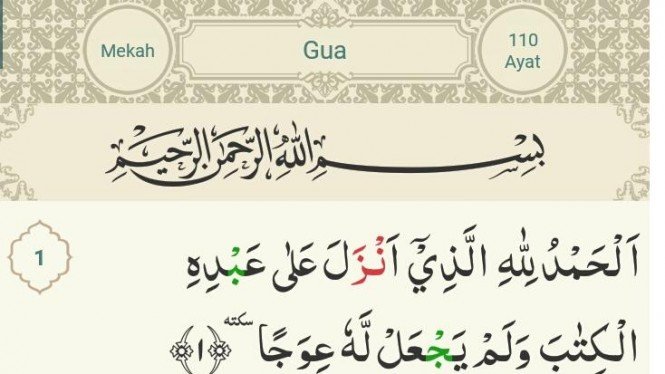 Mekah
Gua
110
Ayat
بِسْمِ اللّٰهِ الرَّحْمٰنِ الرَّحِيْمِ
1
اَلْحَمْدُ لِلّٰهِ الَّذِيْٓ اَنْزَلَ عَلٰى عَبْدِهِ
الْكِتٰبَ وَلَمْ يَجْعَلْ لَّهٗ عِوَجًا ۜ سكته ﴿١﴾